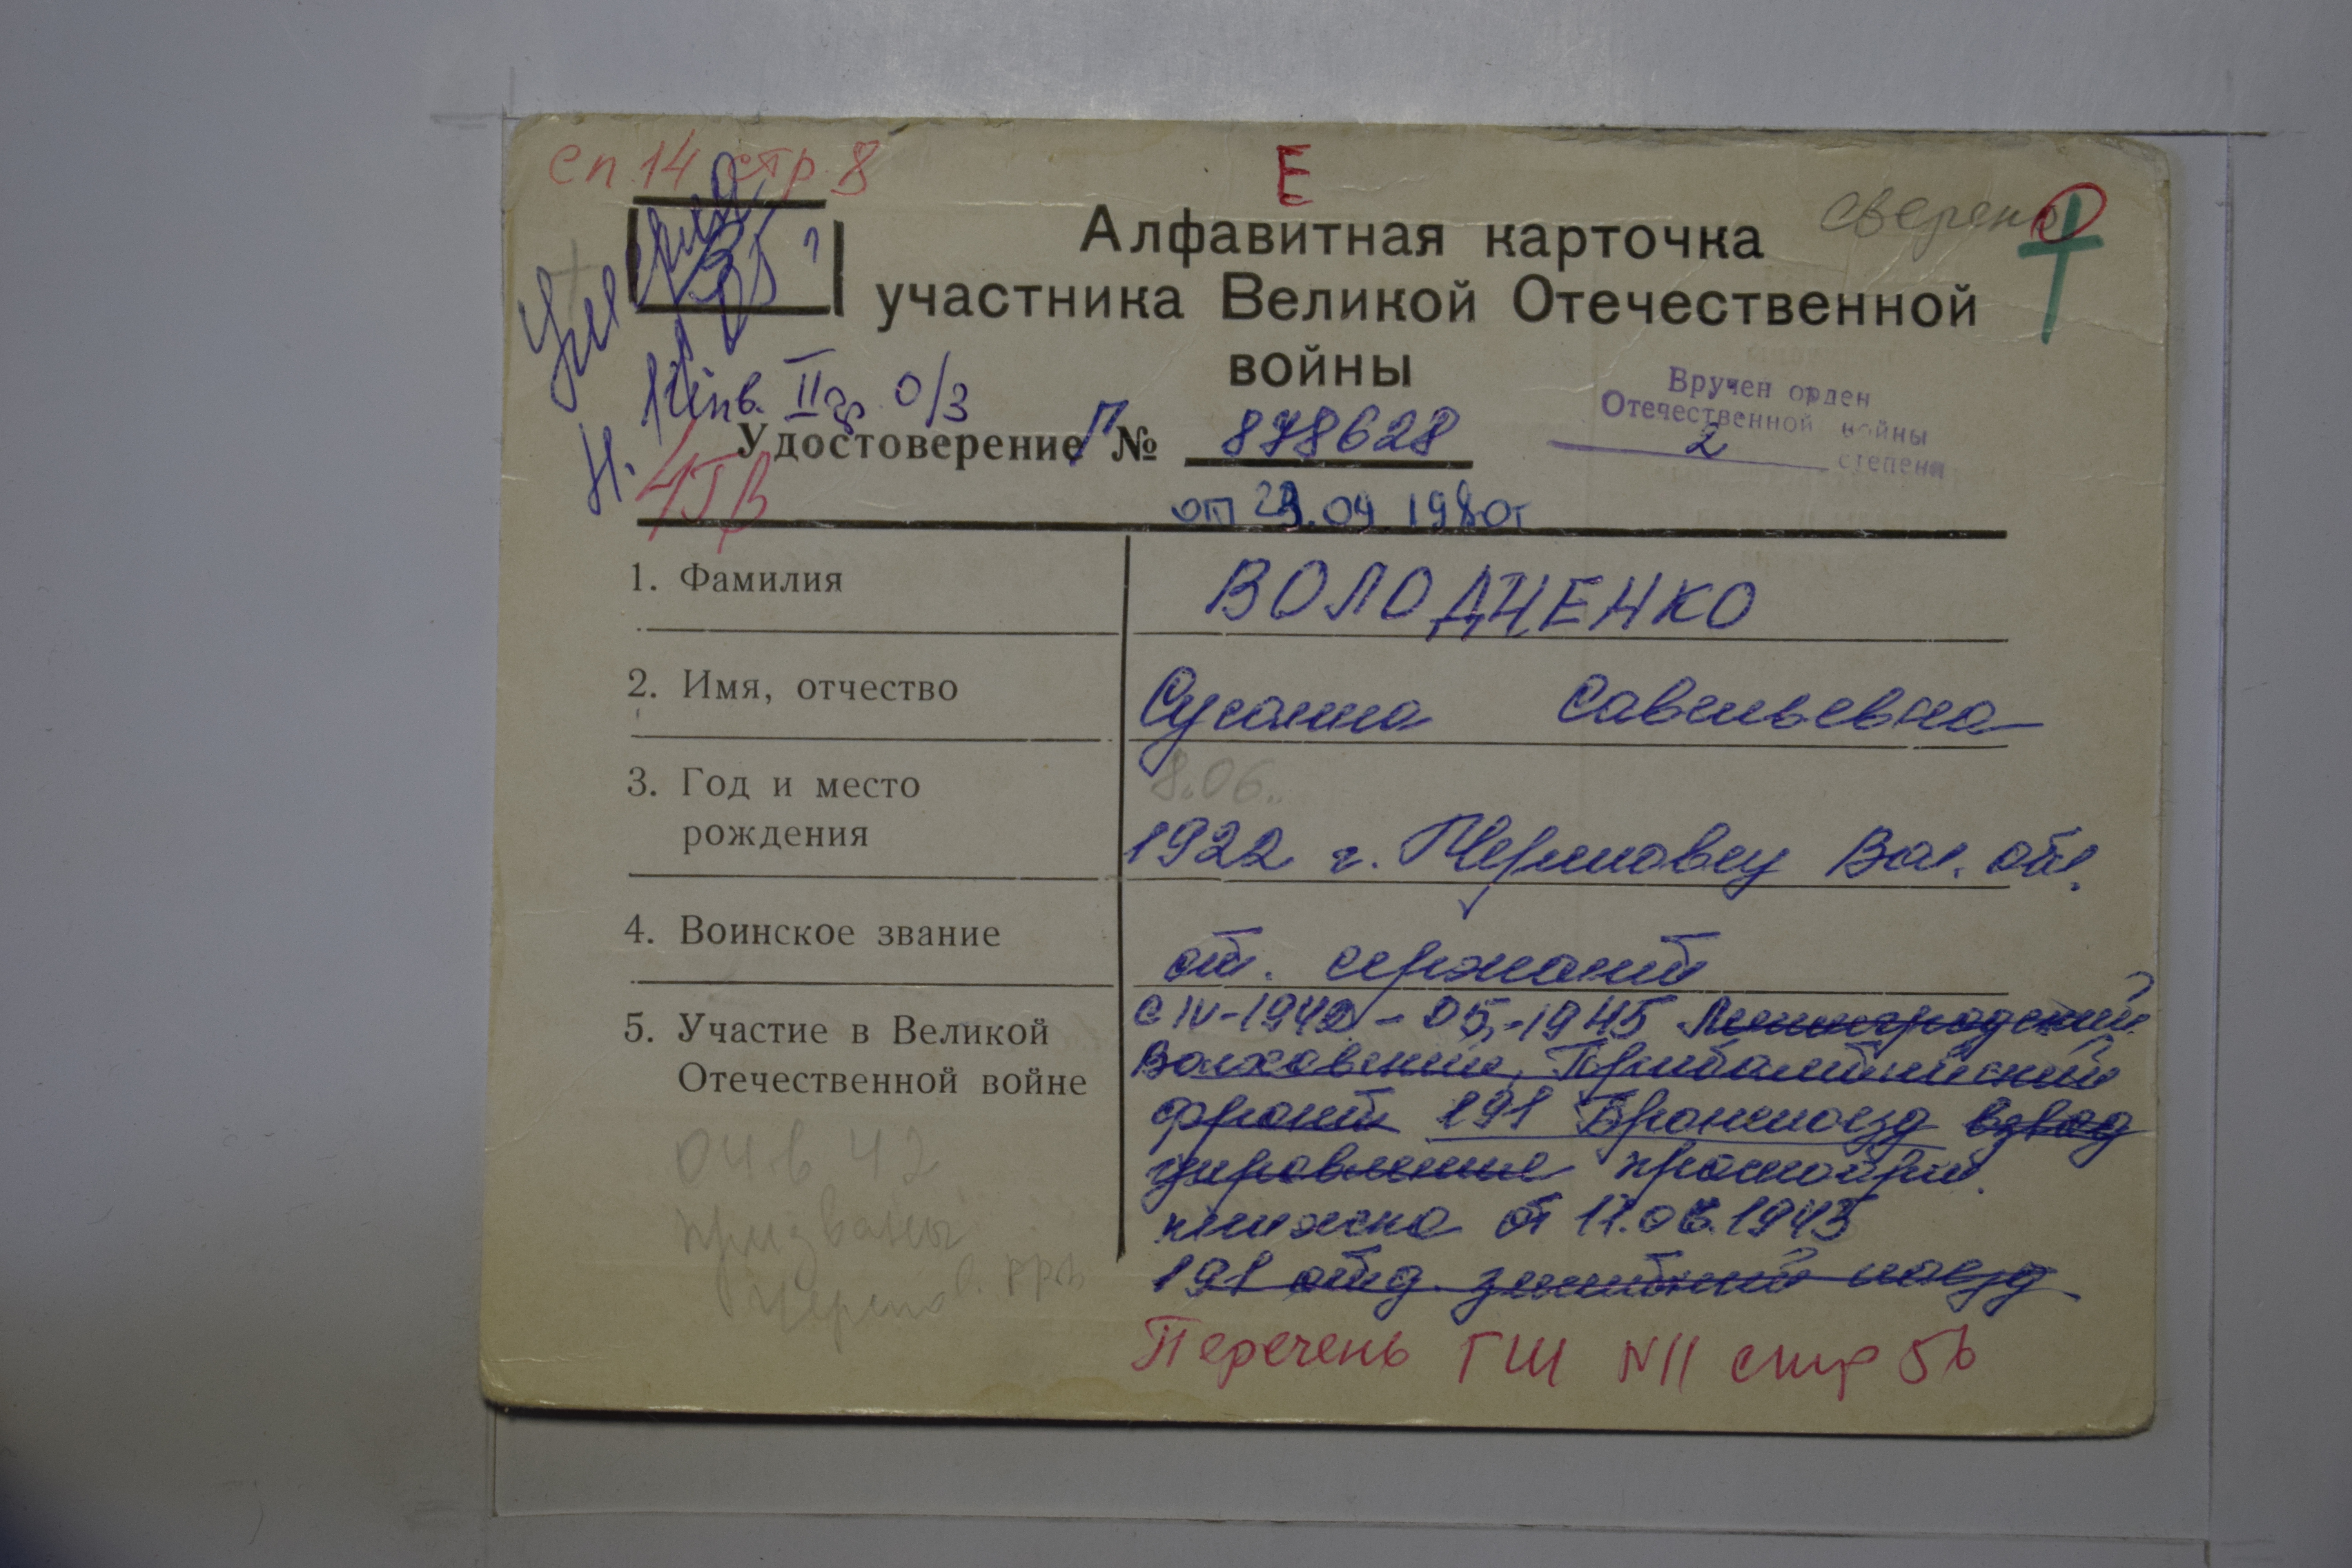 сп 14 стр 8
Е
сверено
Алфавитная карточка
участника Великой Отечественной
войны
Инв. II гр. О/З
Вручен орден
Отечественной войны
2 степени
Удостоверение Г № 878628
от 29.04 1980г
1. Фамилия
ВОЛОДЧЕНКО
2. Имя, отчество
Сусанна Савельевна
8.06.
3. Год и место
рождения
1922 г. Череповец Вол. обл.
4. Воинское звание
ст. сержант
5. Участие в Великой
Отечественной войне
с IV-1942 - 05.-1945 Ленинградский
Волховский, Прибалтийский
фронт 191 Бронепоезд взвод
управления красноарм.
книжка от 11.08.1945
191 отд. зенитный поезд
04 в 42
призваны
Черепов. РВК
Перечень ГШ N11 стр 56